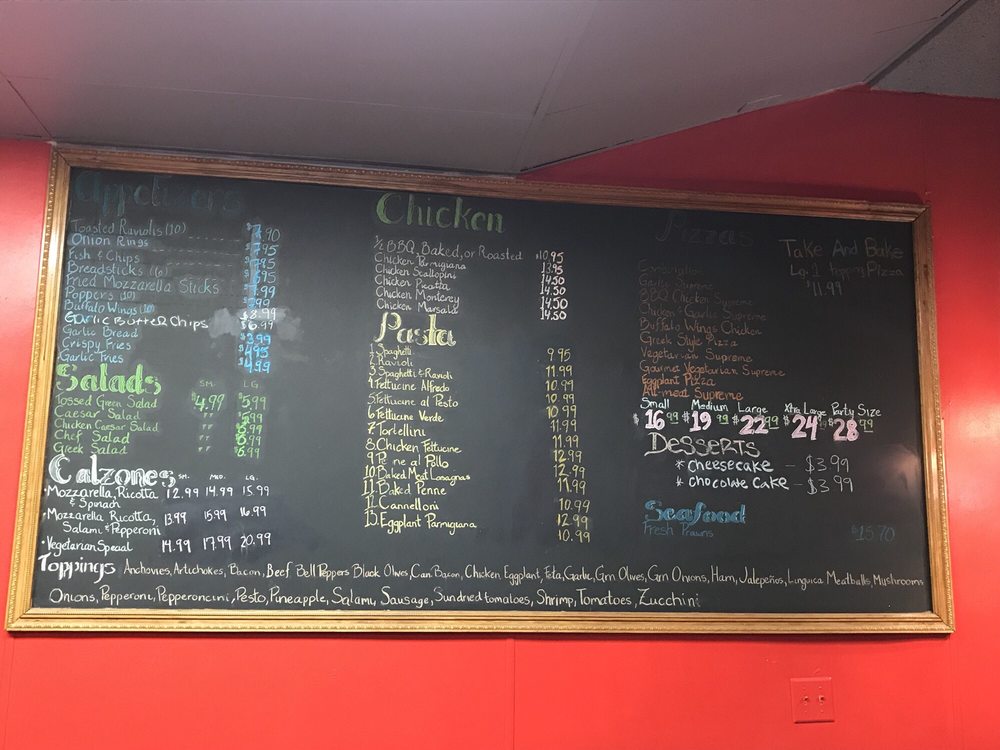 Appetizers
Toasted Raviolis (10) $7.90
Onion Rings $7.95
Fish & Chips $7.95
Breadsticks (6) $6.95
Fried Mozzarella Sticks $7.99
Poppers (10) $7.99
Buffalo Wings (10) $8.99
Garlic Butter Chips $6.99
Garlic Bread $3.99
Crispy Fries $4.95
Garlic Fries $4.99
Salads SM. LG.
Tossed Green Salad $4.99 $5.99
Caesar Salad
Chicken Caesar Salad $6.99
Chef Salad $6.99
Greek Salad $6.99
Calzones SM. MED. LG.
Mozzarella, Ricotta & Spinach 12.99 14.99 15.99
Mozzarella, Ricotta, Salami & Pepperoni 13.99 15.99 16.99
Vegetarian Special 14.99 17.99 20.99
Chicken
½ BBQ, Baked, or Roasted $10.95
Chicken Parmigiana 13.95
Chicken Scallopini 14.50
Chicken Picatta 14.50
Chicken Monterey 14.50
Chicken Marsala 14.50
Pasta
1 Spaghetti 9.95
2 Ravioli 11.99
3 Spaghetti & Ravioli 10.99
4 Fettucine Alfredo 10.99
5 Fettucine al Pesto 10.99
6 Fettucine Verde 11.99
7 Tortellini 11.99
8 Chicken Fettucine 12.99
9 Penne al Pollo 12.99
10 Baked Meat Lasagnas 11.99
11 Baked Penne 10.99
12 Cannelloni 12.99
13 Eggplant Parmigiana 10.99
Pizzas
Combination
Garlic Supreme
BBQ Chicken Supreme
Chicken & Garlic Supreme
Buffalo Wings Chicken
Greek Style Pizza
Vegetarian Supreme
Gourmet Vegetarian Supreme
Eggplant Pizza
All-meat Supreme
Small Medium Large Xtra Large Party Size
$16.99 $19.99 $22.99 $24.99 $28.99
Take And Bake
Lg. 1 Topping Pizza
$11.99
Desserts
* Cheesecake - $3.99
* Chocolate Cake - $3.99
Seafood
Fresh Prawns $15.70
Toppings Anchovies, Artichokes, Bacon, Beef Bell Peppers Black Olives, Can Bacon, Chicken, Eggplant, Feta, Garlic, Grn Olives, Grn Onions, Ham, Jalepeños, Linguica Meatballs, Mushrooms
Onions, Pepperoni, Pepperoncini, Pesto, Pineapple, Salami, Sausage, Sundried tomatoes, Shrimp, Tomatoes, Zucchini